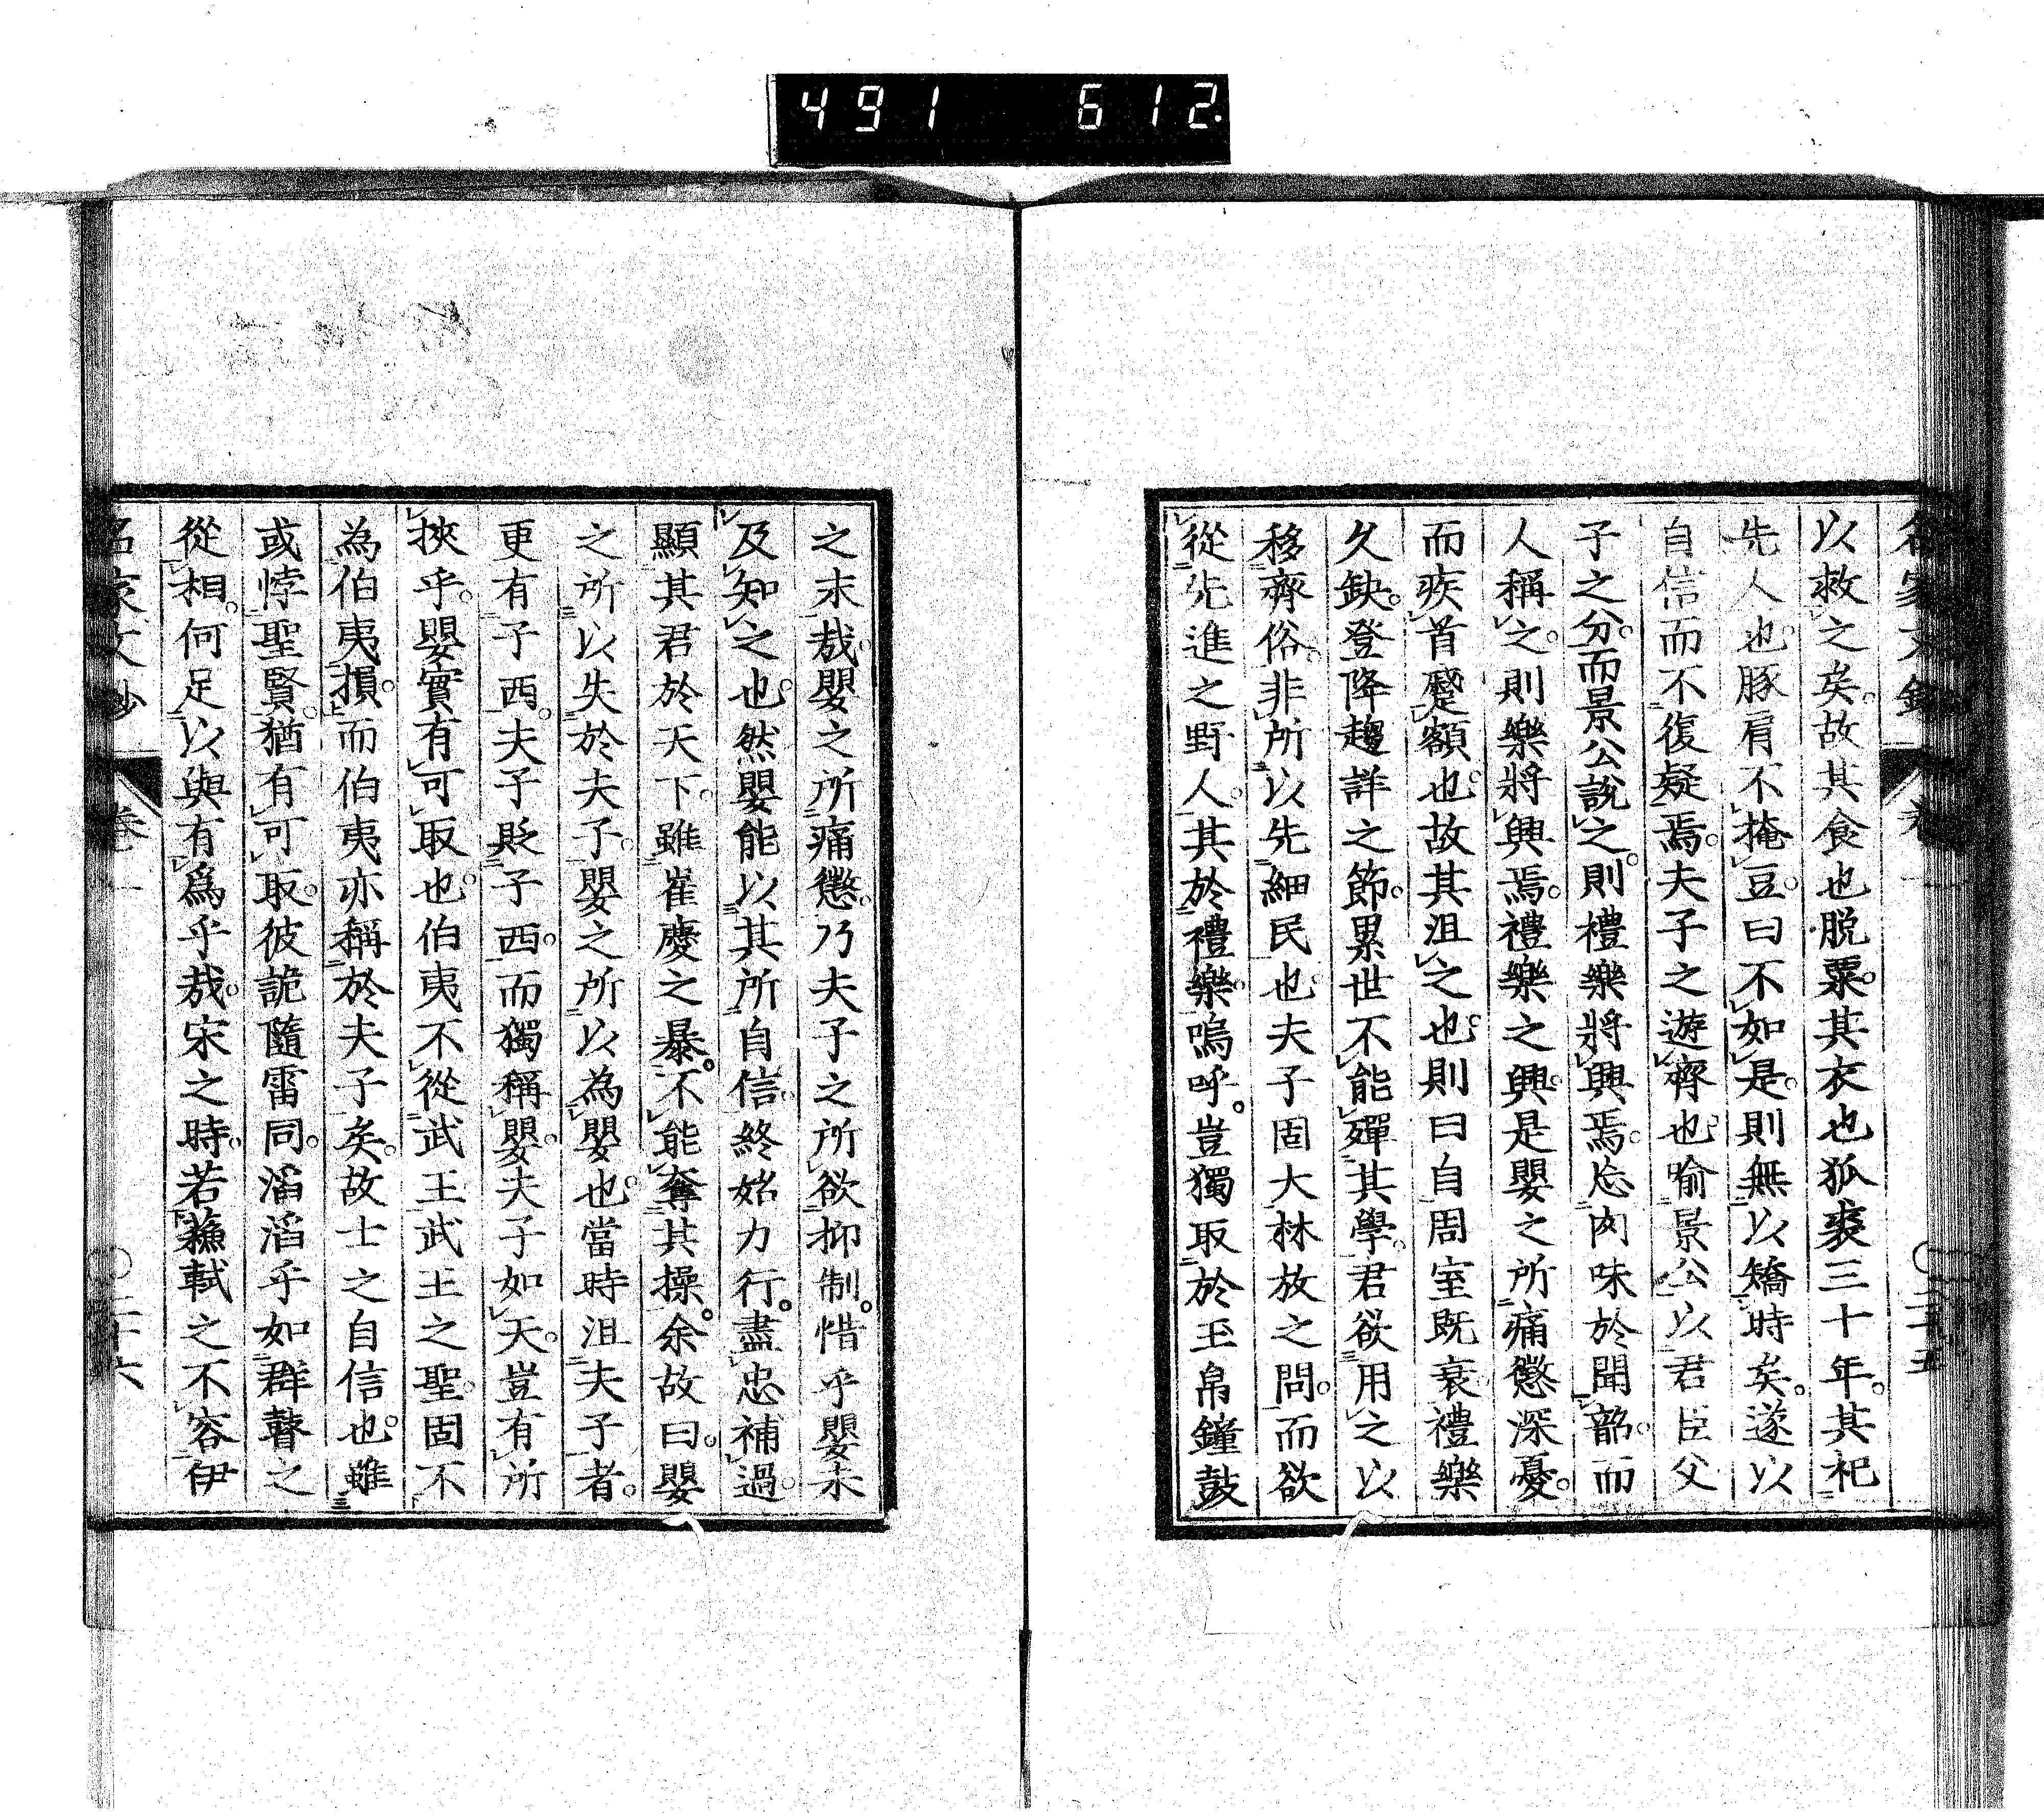 491 612.
名家文鈔 卷一 〇二十五
以救之矣。故其食也脫粟。其衣也狐裘三十年。其祀
先人也。豚肩不掩豆。曰不如是。則無以矯時矣。遂以
自信而不復疑焉。夫子之遊齊也。喻景公以君臣父
子之分。而景公說之。則禮樂將興焉。忘肉味於聞韶。而
人稱之。則樂將興焉。禮樂之興。是嬰之所痛懲深憂。
而疾首蹙額也。故其沮之也。則曰自周室旣衰禮樂
久缺。登降趨詳之節。累世不能殫其學。君欲用之以
移齊俗。非所以先細民也。夫子固大林放之問。而欲
從先進之野人。其於禮樂。嗚呼。豈獨取於玉帛鐘鼓
之末哉。嬰之所痛懲。乃夫子之所欲抑制。惜乎嬰未
及知之也。然嬰能以其所自信。終始力行。盡忠補過。
顯其君於天下。雖崔慶之暴。不能奪其操。余故曰。嬰
之所以失於夫子。嬰之所以為嬰也。當時沮夫子者。
更有子西。夫子貶子西。而獨稱嬰。夫子如天。豈有所
挾乎。嬰實有可取也。伯夷不從武王。武王之聖。固不
為伯夷損。而伯夷亦稱於夫子矣。故士之自信也。雖
或悖聖賢。猶有可取。彼詭隨雷同。滔滔乎如群瞽之
從相。何足以與有爲乎哉。宋之時。若蘇軾之不容伊
名家文鈔 卷一 〇二十六